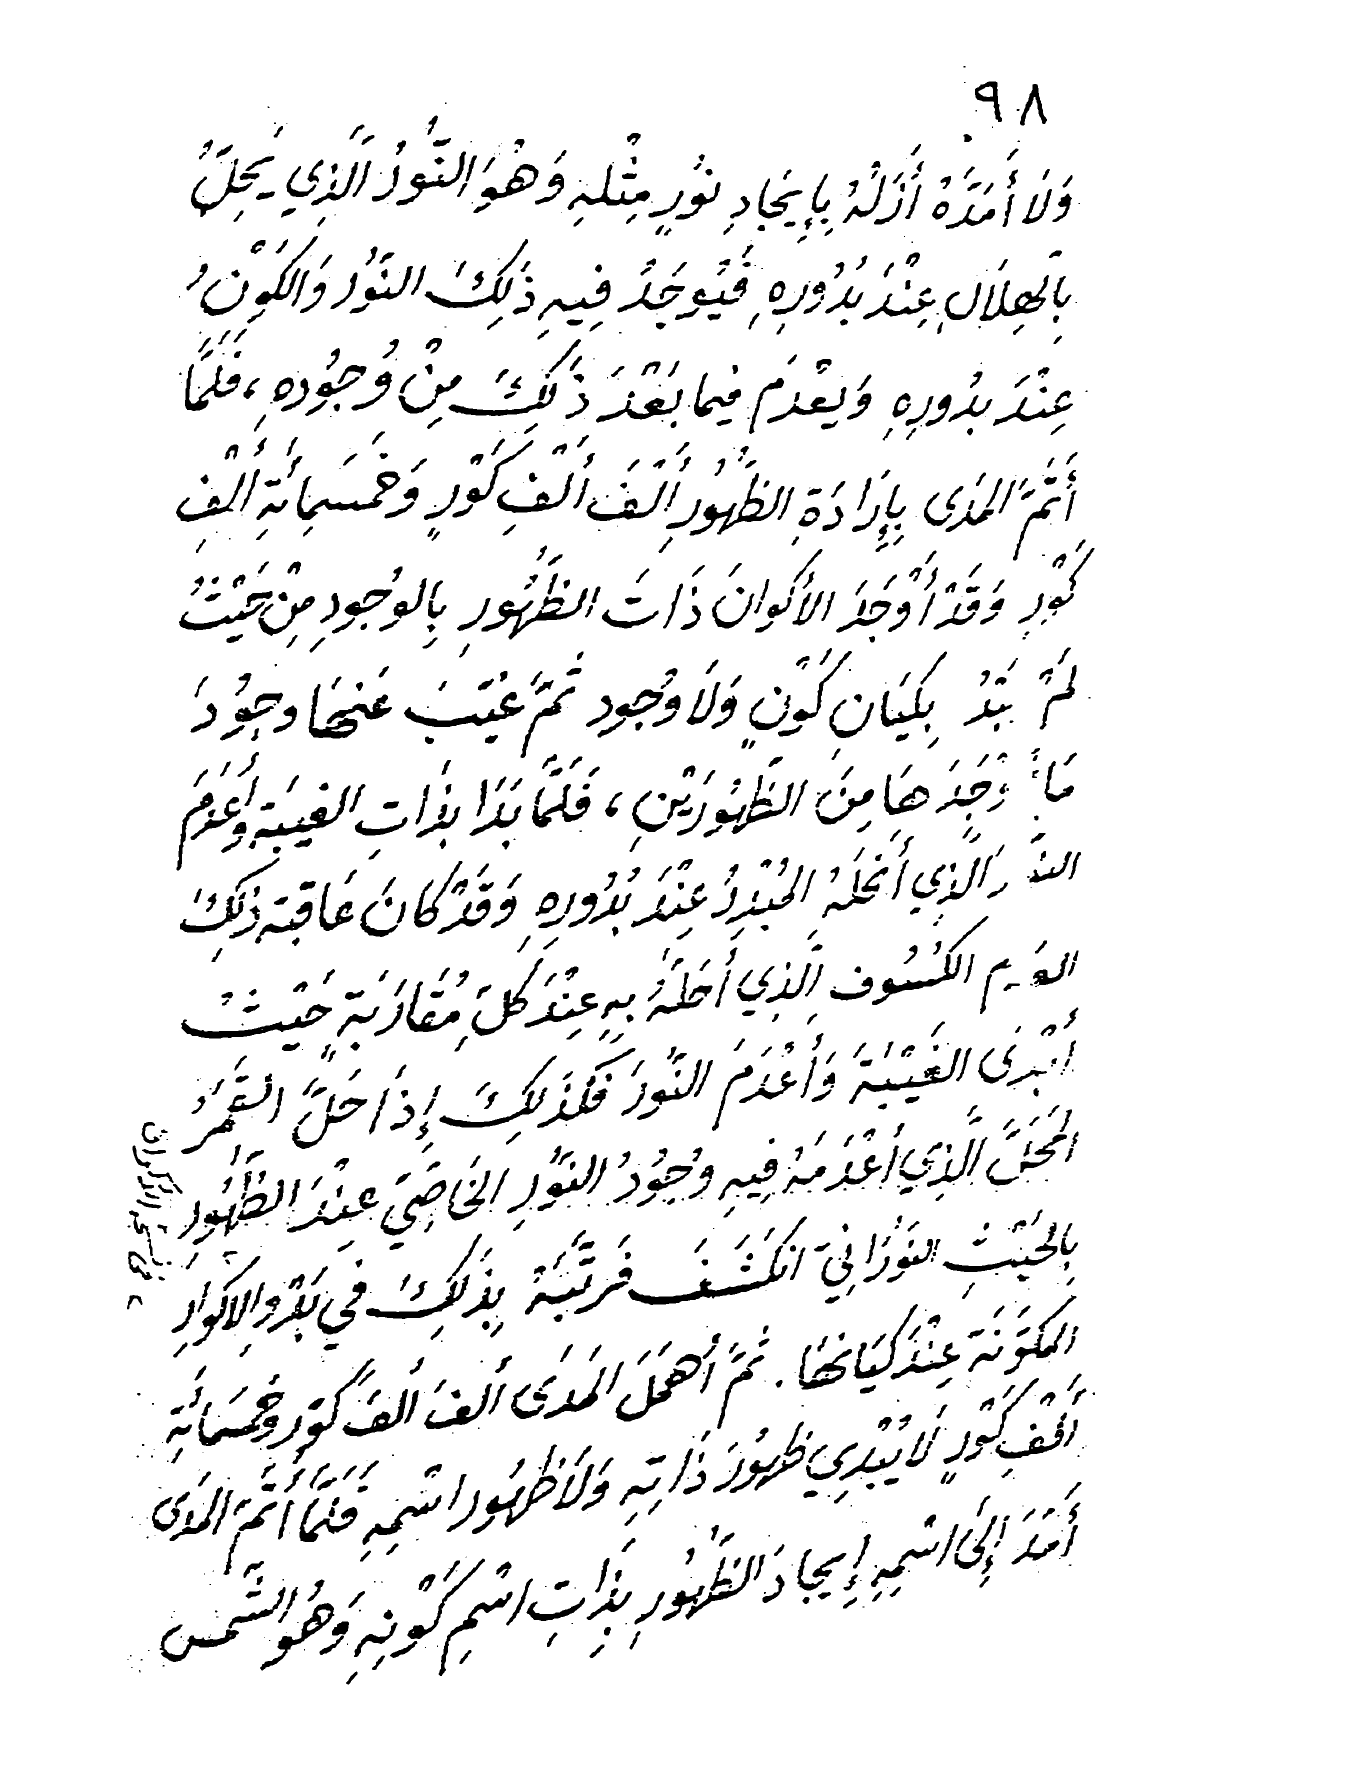 ٩٨
وَلَا أَمَدَّهُ أَزَلُهُ بِإِيجَادِ نُورٍ مِثْلِهِ وَهُوَ النُّورُ الَّذِي يَحِلُّ
بِالهِلَالِ عِنْدَ بُدُورِهِ فَيُوجَدُ فِيهِ ذَلِكَ النُّورُ وَالكَوْنُ
عِنْدَ بدُورِهِ وَيعْدَم فيما بَعْدَ ذَلِكَ مِنْ وُجُودِهِ، فَلَمَّا
أَتَمَّ المَدَى بِإِرَادَةِ الظُّهُورِ أَلْفَ أَلْفِ كَوْرٍ وَخَمْسَمِائَةِ أَلْفِ
كَوْرٍ وَقَدْ أَوْجَدَ الأكوانَ ذَاتَ الظُّهُورِ بِالوجُودِ مِنْ حَيْثُ
لَمْ تَبْدُ بِكِيَانِ كَوْنٍ وَلَا وُجُود ثُمَّ غَيَّبَ عَنْهَا وجُودَ
مَا أَوْجَدَهَا مِنَ الظُّهُورَيْنِ، فَلَمَّا بَدَا بِذَاتِ الغيبَةِ وَأَعْدَمَ
الَّذِي أَنْحَلَهُ المُبْدِئُ عِنْدَ بُدُورِهِ وَقَدْ كَانَ عَاقِبَة ذَلِكَ
الكُسُوف الَّذِي أَحَلَّهُ بِهِ عِنْدَ كُلِّ مُقَارَبَةٍ حَيْثُ
أَبْدَى الغَيْبَةَ وَأَعْدَمَ النُّورَ فَكَذَلِكَ إِذَا حَلَّ القَمَرُ
المَحَلَّ الَّذِي أَعْدَمَهُ فِيهِ وجُودُ النُّورِ الخَاصِّيِّ عِنْدَ الظُّهُورِ
بِالحَيْثِ النُّورَانِيِّ انكَشَفَ فَرَتَّبَهُ بِذَلِكَ في بَدْوِ الاكْوَارِ
المكَوَّنَة عِنْدَ كِيَانهَا. ثُمَّ أَهْمَلَ المَدَى أَلفَ أَلفَ كَوْرٍ وخمسَمائَةِ
أَلْفِ كَوْرٍ لَا يُبْدِي ظهُورَ ذَاتِهِ وَلَا ظهُور اسْمِهِ فَلَمَّا أَتَمَّ المَدَى
أَمَدَ إِلَى اسْمِهِ إِيجادَ الظُّهُورِ بِذَاتِ اسْمِ كَوْنِهِ وَهُوَ الشَّمس